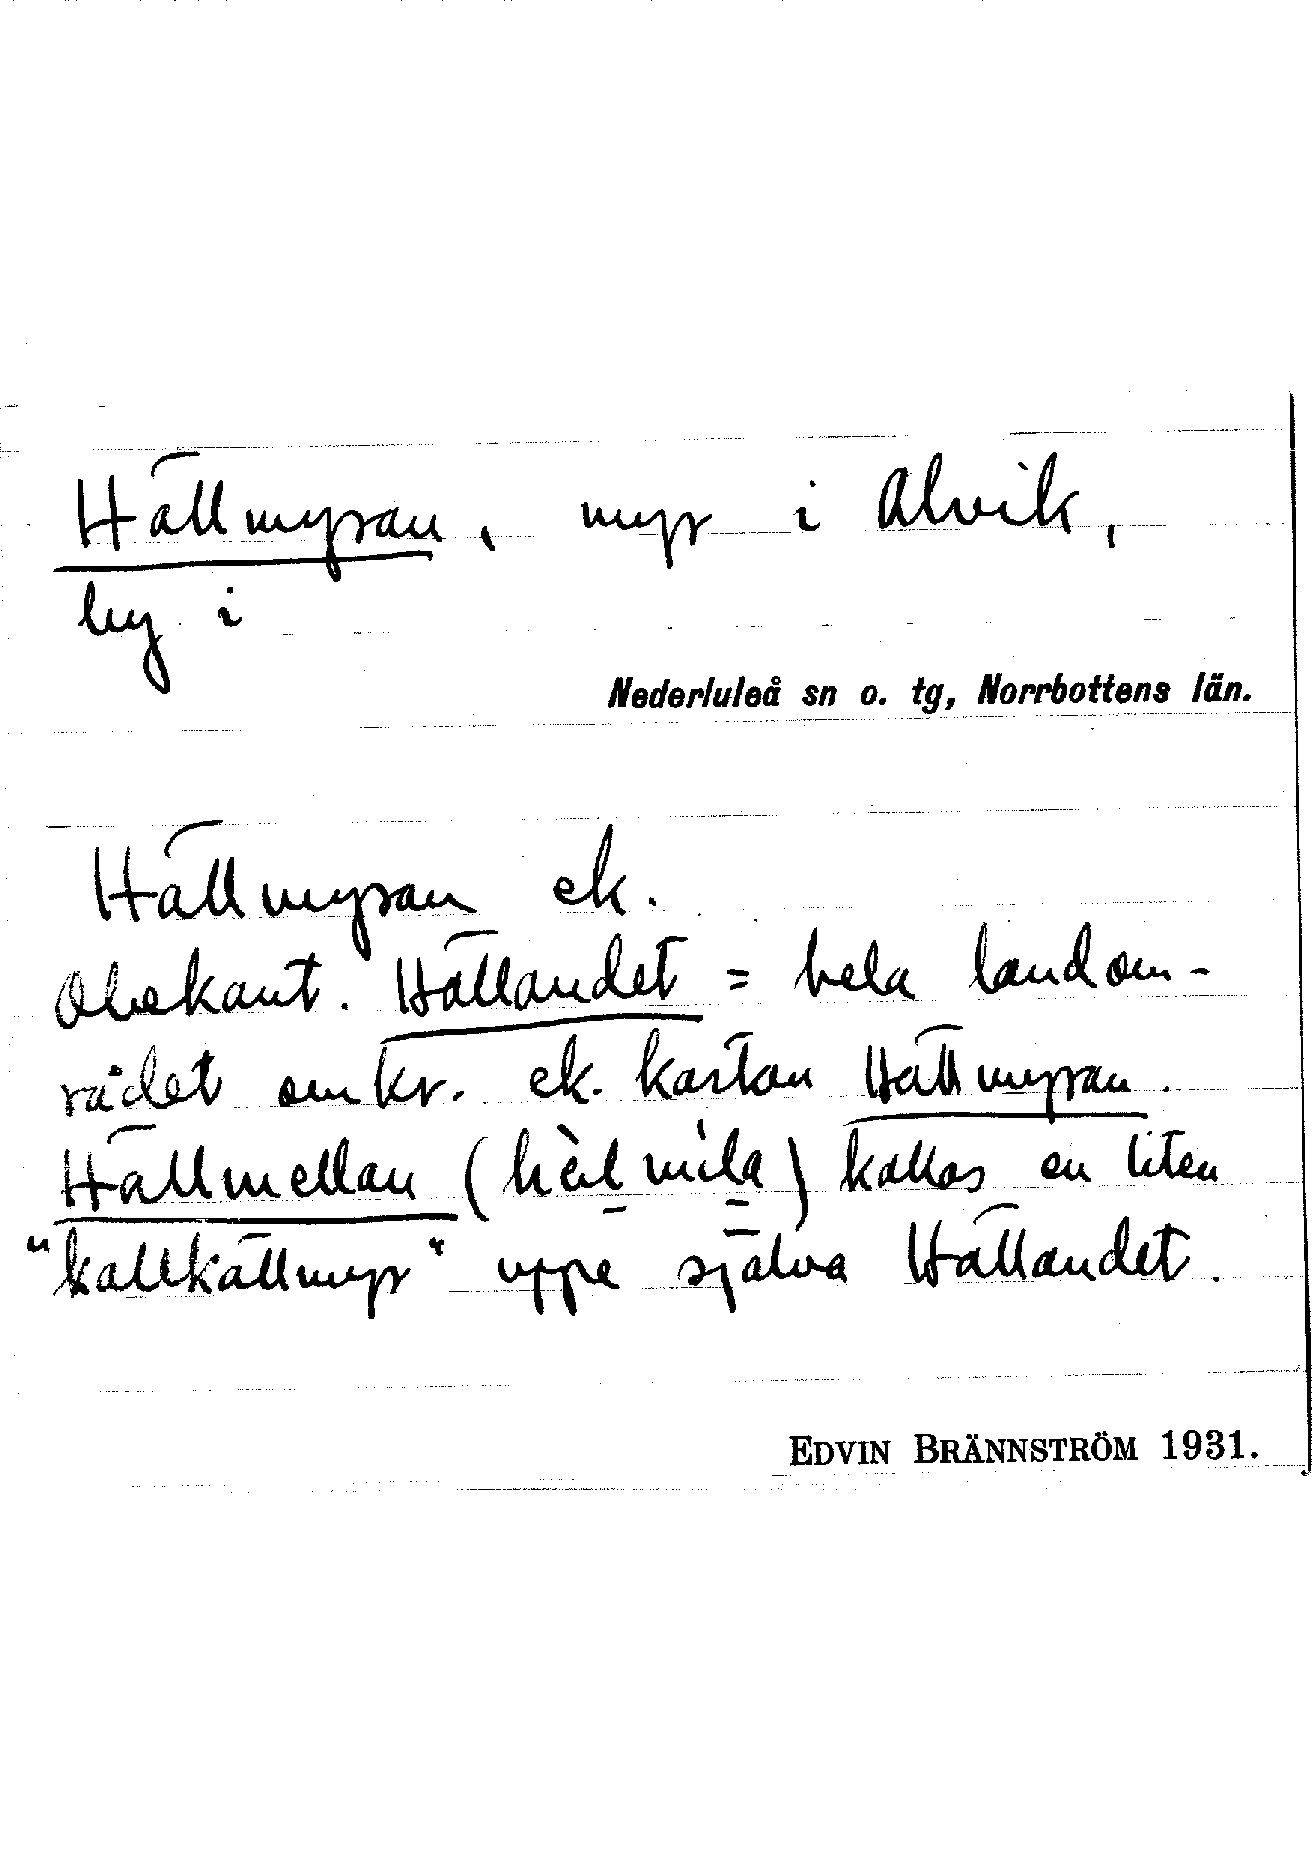 Hällmyran, myr i Alvik,
by i
Nederluleå sn o. tg, Norrbottens län.
Hällmyran ek.
Obekant. Hällandet = hela landom-
rådet omkr. ek. kartan Hällmyran.
Hällmellan (hèlmìla) kallas en liten
"kallkällmyr" uppe själva Hällandet.
EDVIN BRÄNNSTRÖM 1931.